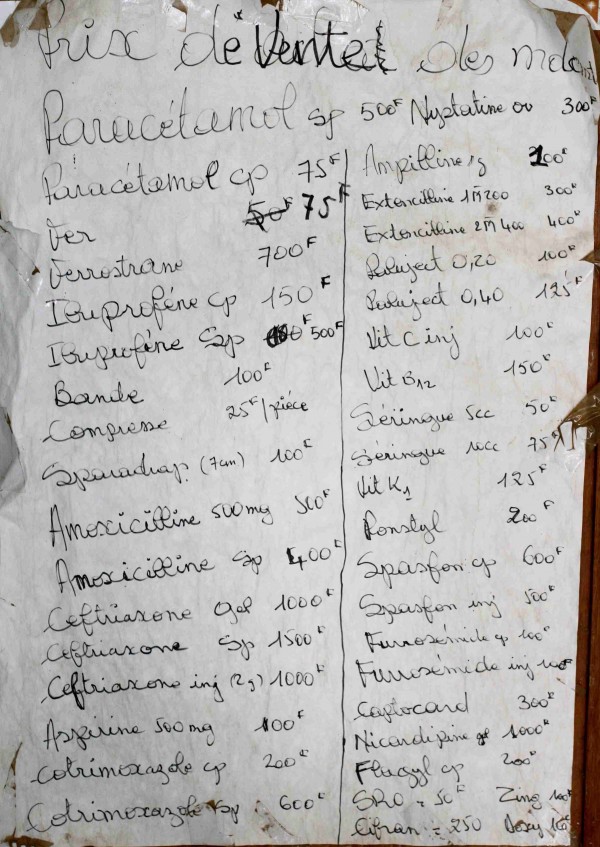 Prix de Vente des
Paracétamol sp 500F
Paracétamol cp 75F
Fer 50F 75F
Ferrostrane 700F
Ibuprofène cp 150F
Ibuprofène Sp 500F
Bande 100F
Compresse 25F/pièce
Sparadrap (7cm) 100F
Amoxicilline 500mg 500F
Amoxicilline Sp 400F
Ceftriaxone gel 1000F
Ceftriaxone Sp 1500F
Ceftriaxone inj (2g) 1000F
Aspirine 500mg 100F
Cotrimoxazole cp 200F
Cotrimoxazole sp 600F
Nystatine ov 300F
Ampilline 1g 200F
Extencilline 1M200 300F
Extencilline 2M400 400F
Paluject 0,20 100F
Paluject 0,40 125F
Vit C inj 100F
Vit B12 150F
Séringue 5cc 50F
Séringue 10cc 75F
Vit K1 125F
Ponstyl 200F
Spasfon cp 600F
Spasfon inj 500F
Furosémide cp 100F
Furosémide inj 100F
Captocard 300F
Nicardipine gel 1000F
Flagyl cp 200F
SRO = 50F Zinc 100F
Cifran = 250 Doxy